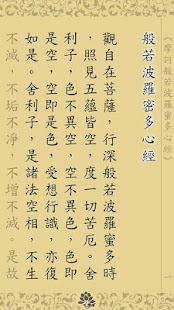 《摩訶般若波羅蜜多心經》 一
般若波羅密多心經
觀自在菩薩，行深般若波羅蜜多時
，照見五蘊皆空，度一切苦厄。舍
利子，色不異空，空不異色，色即
是空，空即是色，受想行識，亦復
如是。舍利子，是諸法空相，不生
不滅，不垢不淨，不增不減。是故